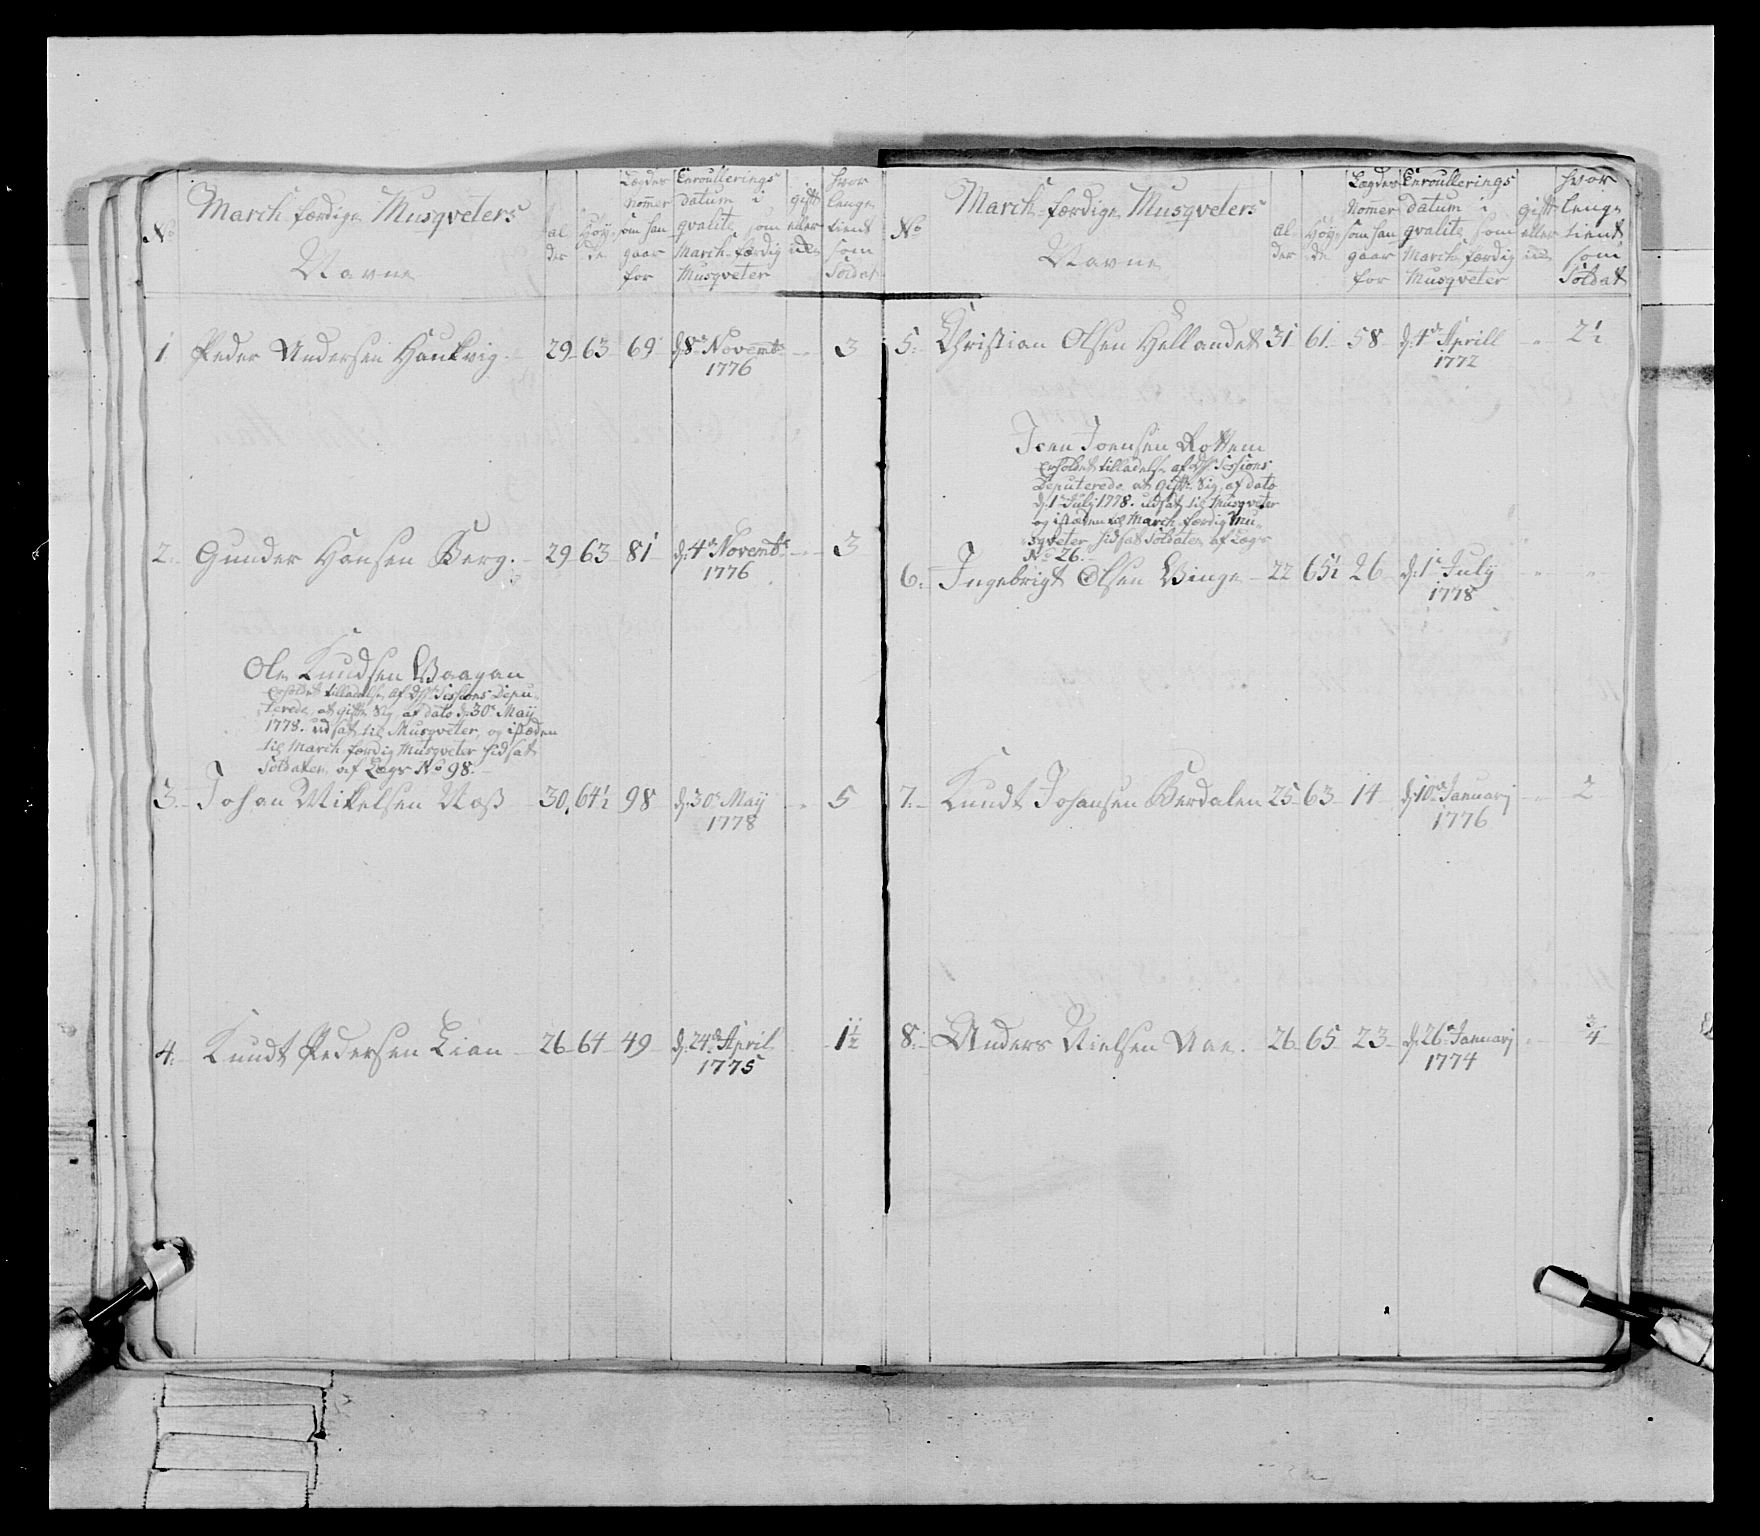 No
March færdige Musqveters
Navne
Al
der
Høy
de
Lægdes
Nommer
som han
gaar
for
Enroullerings
datum i
qvalite som
March færdig
Musqveter
gift
eller
hvor
lenge
tient
som
Soldat
1 Peder Andersen Haukvig 29 63 69 d: 8de Novembr 3
1776
2 Gunder Hansen Berg 29 63 81 d: 4de Novembr 3
1776
Ole Knudsen Vaagan
erholdet tilladelse af Hr Sessions Depu-
terede, at gifte Sig, af dato d: 30te May
1778. udsat til Musqveter, og isteden
til March færdig Musqveter Indsat
Soldaten af Lægs No 98.
3 Johan Mikelsen Næss 30 64½ 98 d: 30te May 5
1778
4 Knudt Pedersen Lian 26 64 49 d: 24de April 1½
1775
No
March færdige Musqveters
Navne
Al
der
Høy
de
Lægdes
Nommer
som han
gaar
for
Enroullerings
datum i
qvalite som
March færdig
Musqveter
gift
eller
hvor
lenge
tient
som
Soldat
5 Christian Olsen Hellandet 31 61 58 d: 4de Aprill 2½
1772
Joen Joensen Rottem
erholdet tilladelse af Hr Sessions
Deputerede, at gifte Sig, af dato
d: 1te July 1778. udsat til Musqveter
og isteden til March færdig Mu-
sqveter Indsat Soldaten af Lægs
No 26.
6 Ingebrigt Olsen Vinge 22 65½ 26 d: 1te July
1778
7 Knudt Johansen Berdalen 25 63 14 d: 10de Januarj 2
1776
8 Anders Nielsen Aae 26 65 23 d: 26de Januarj ¾
1774